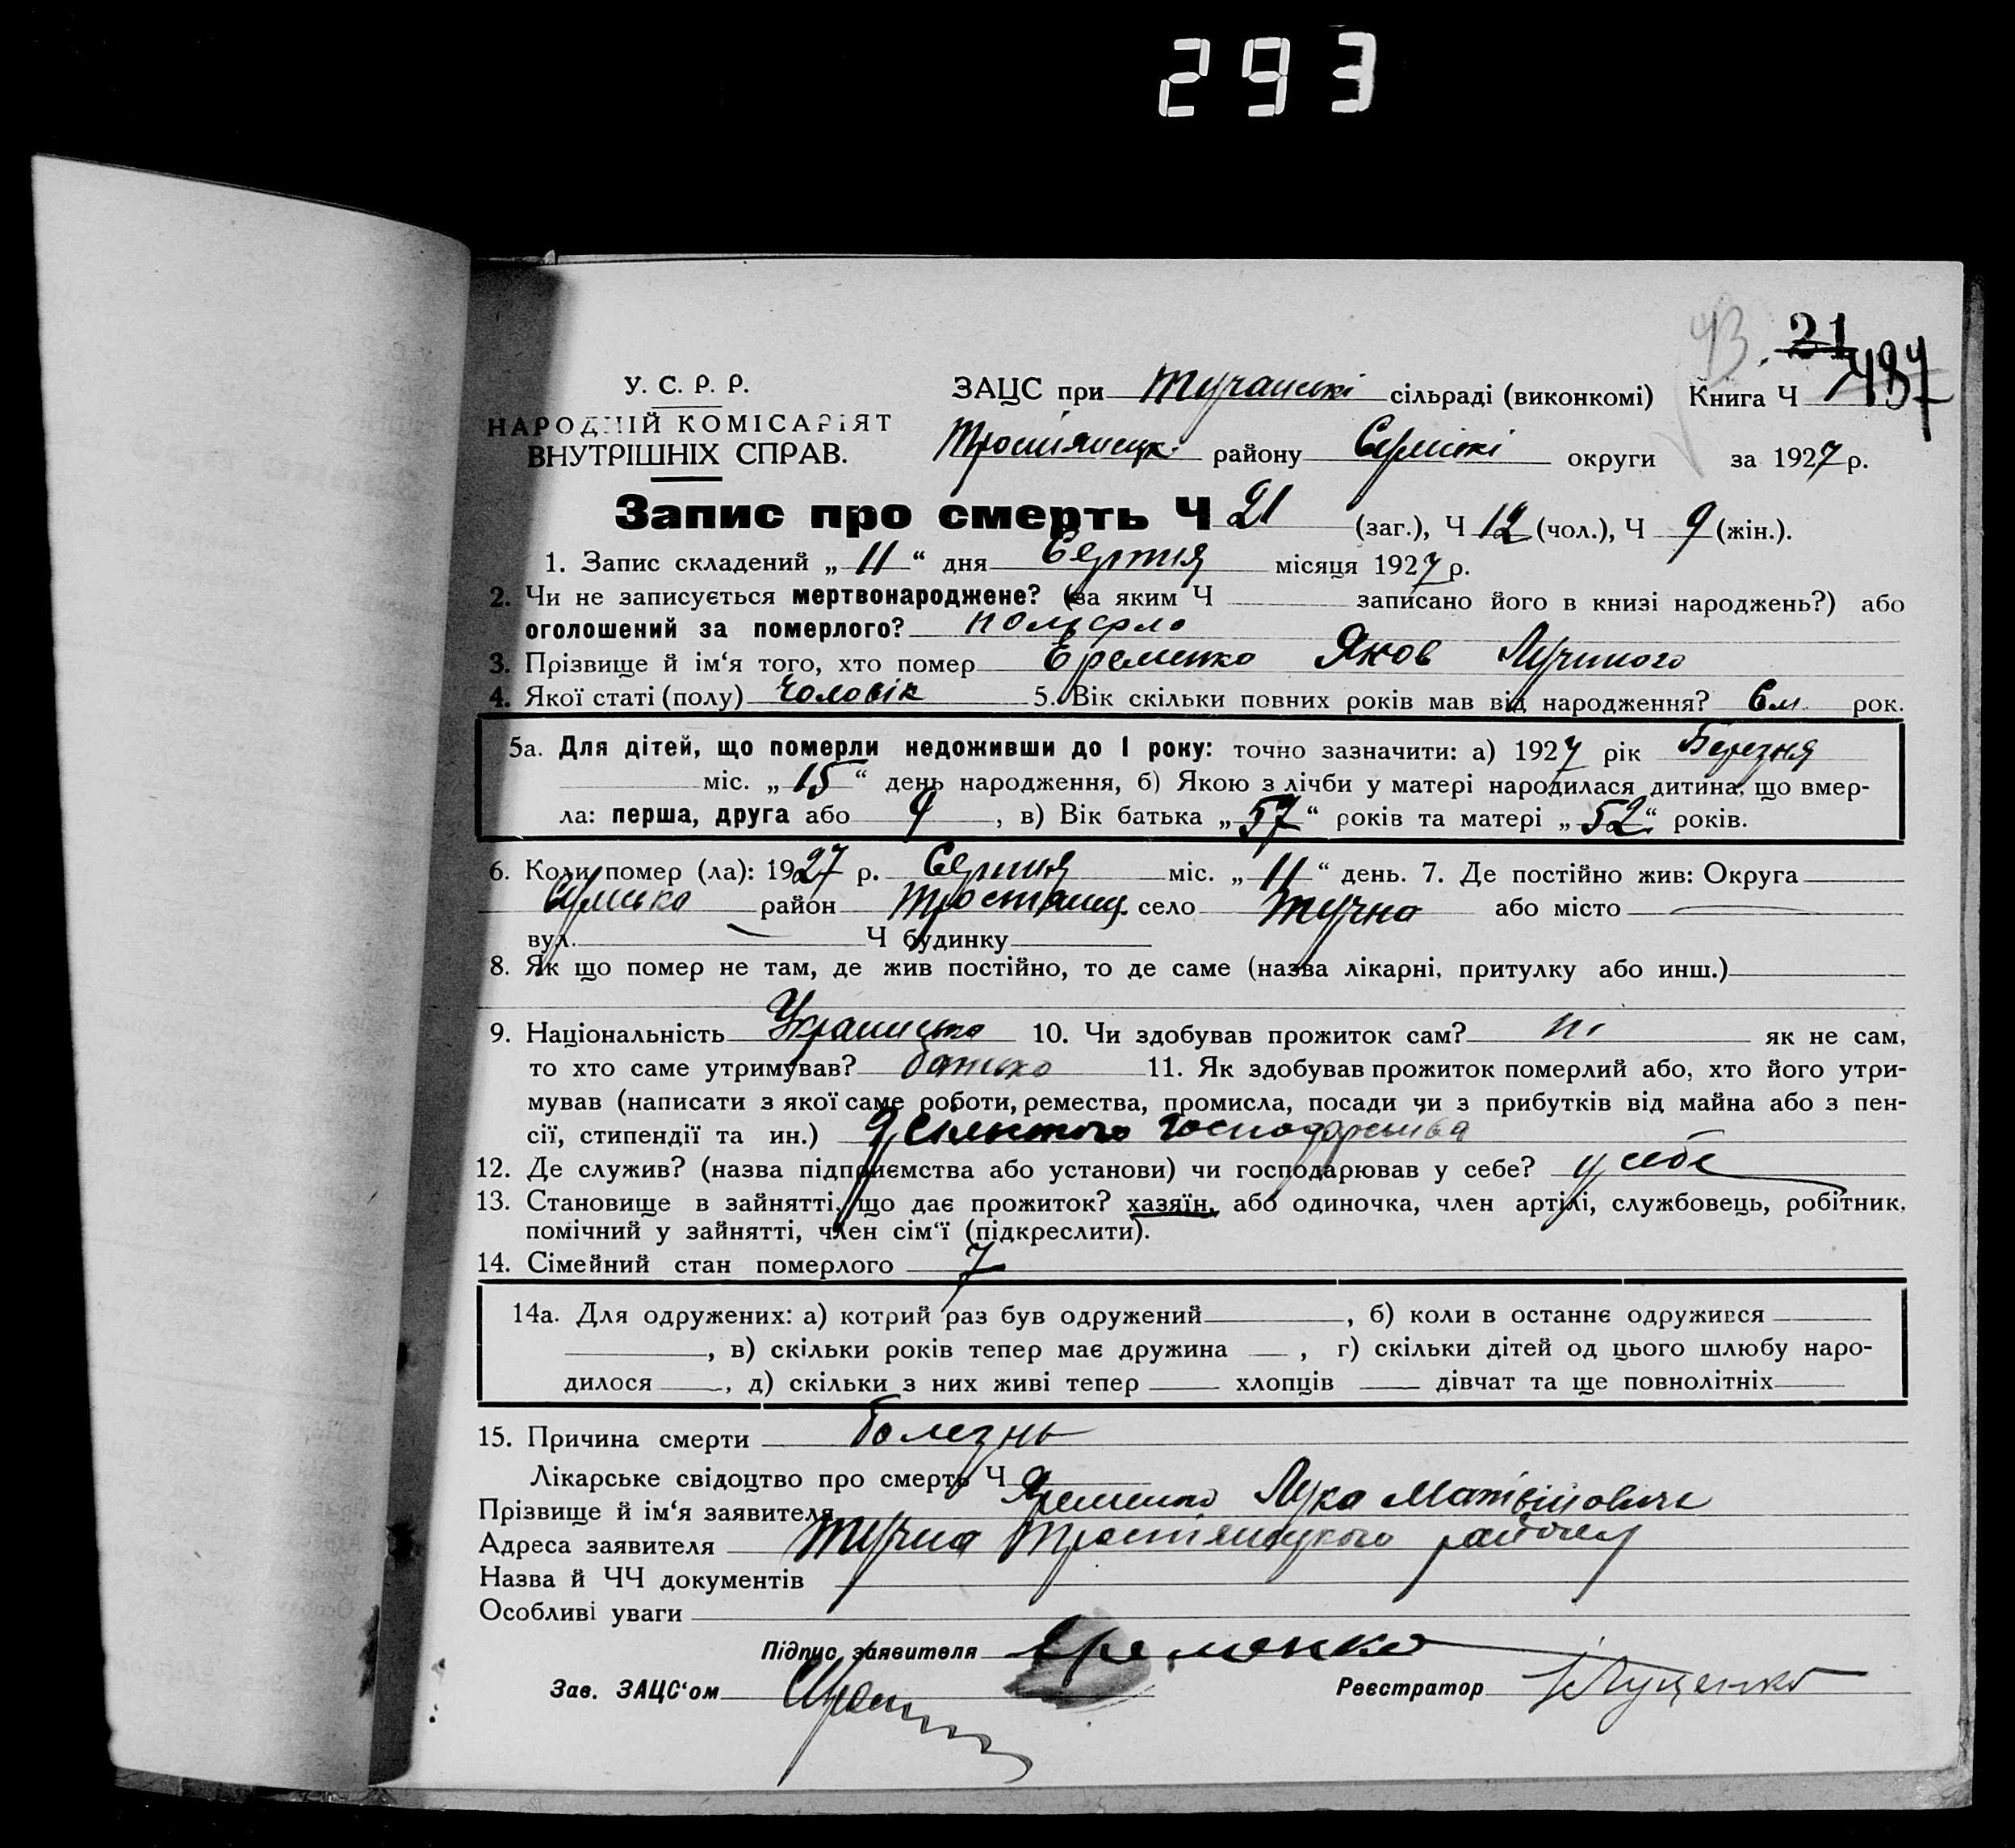 293
21
У. С. Р. Р.
НАРОДНІЙ КОМІСАРІЯТ
ВНУТРІШНІХ СПРАВ.
ЗАЦС при Тучанські сільраді (виконкомі) Книга Ч 1487
Тростянецк. району Сумскі округи за 1927 р.
Запис про смерть Ч 21 (заг.), Ч 12 (чол.), Ч 9 (жін.).
1. Запис складений „11“ дня Серпня місяця 1927 р.
2. Чи не записується мертвонароджене? (за яким Ч записано його в книзі народжень?) або
оголошений за померлого? померло
3. Прізвище й ім‘я того, хто помер Еременко Яков Лучиного
4. Якої статі (полу) чоловік 5. Вік скільки повних років мав від народження? 6 м. рок.
5а. Для дітей, що померли недоживши до 1 року: точно зазначити: а) 1927 рік Березня
міс. „15“ день народження, б) Якою з лічби у матері народилася дитина, що вмер-
ла: перша, друга або 9, в) Вік батька „57“ років та матері „52“ років.
6. Коли помер (ла): 1927 р. Серпня міс. „11“ день. 7. Де постійно жив: Округа
Сумська район Тростянец. село Тучна або місто
вул. Ч будинку
8. Як що помер не там, де жив постійно, то де саме (назва лікарні, притулку або инш.)
9. Національність 10. Чи здобував прожиток сам? ні як не сам,
то хто саме утримував? батько 11. Як здобував прожиток померлий або, хто його утри-
мував (написати з якої саме роботи, ремества, промисла, посади чи з прибутків від майна або з пен-
сії, стипендії та ин.) господарства
12. Де служив? (назва підприємства або установи) чи господарював у себе? у себе
13. Становище в зайнятті, що дає прожиток? хазяїн, або одиночка, член артілі, службовець, робітник,
помічний у зайнятті, член сім‘ї (підкреслити).
14. Сімейний стан померлого 7
14а. Для одружених: а) котрий раз був одружений , б) коли в останнє одружився
, в) скільки років тепер має дружина , г) скільки дітей од цього шлюбу наро-
дилося , д) скільки з них живі тепер хлопців дівчат та ще повнолітніх
15. Причина смерти болезнь
Лікарське свідоцтво про смерть Ч
Прізвище й ім‘я заявителя Яременко Лука Матвійович
Адреса заявителя Тучна Тростянецького району
Назва й ЧЧ документів
Особливі уваги
Підпис заявителя Еременко
Зав. ЗАЦС‘ом Реєстратор Луценко